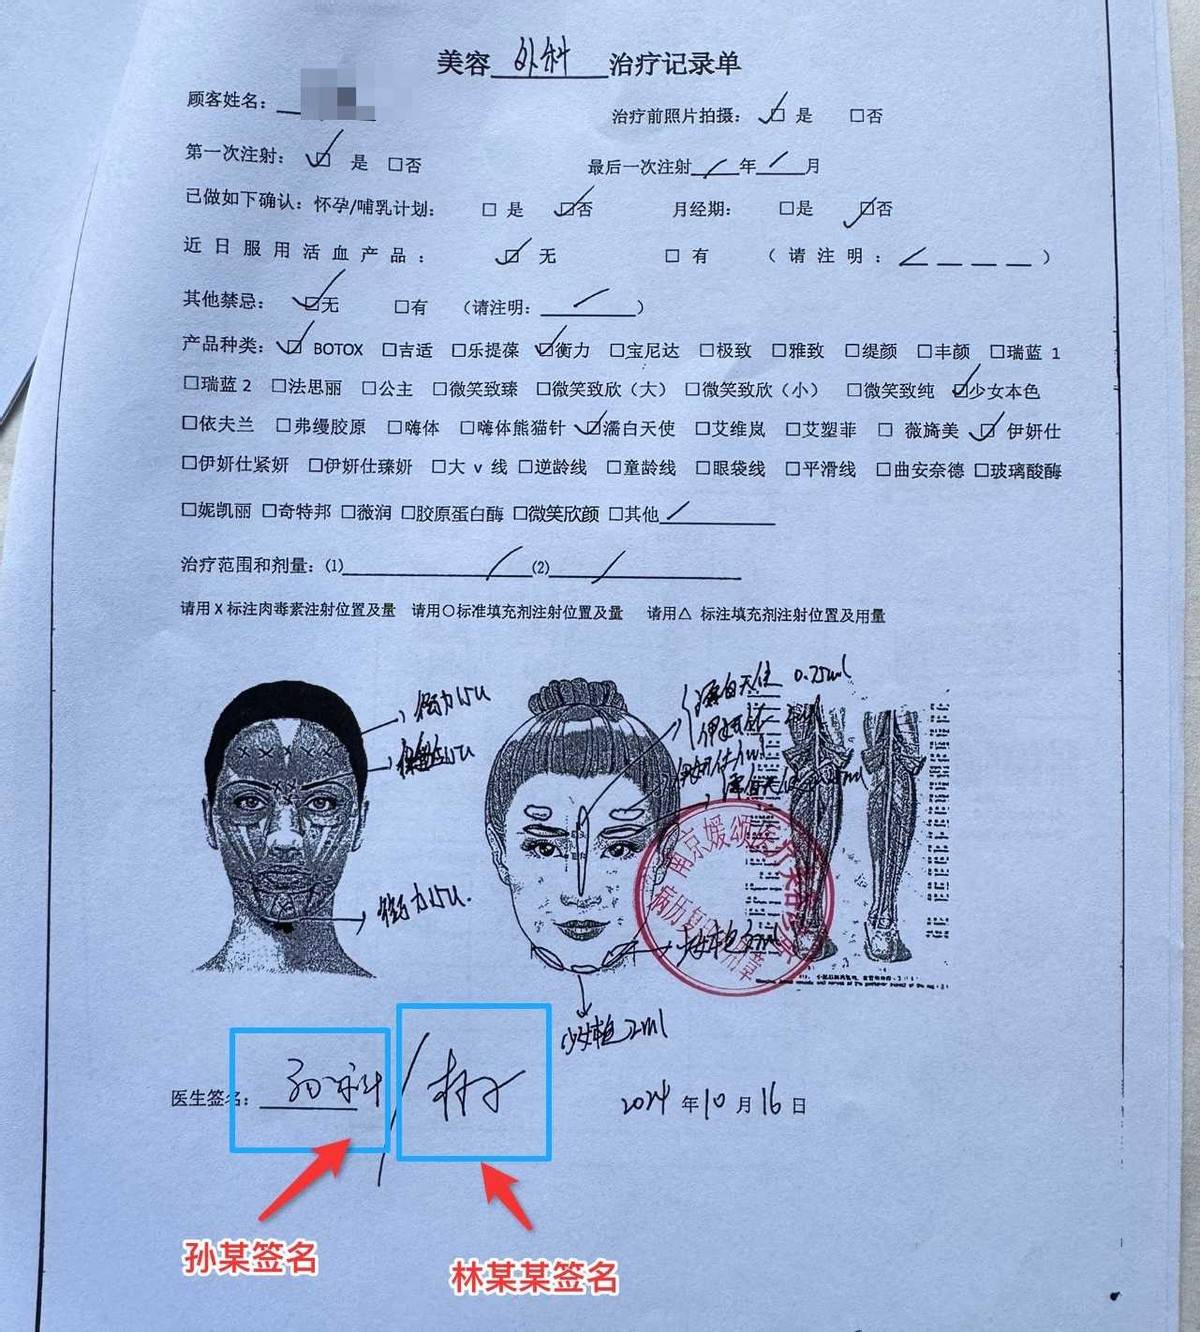 美容 外科 治疗记录单
顾客姓名：
治疗前照片拍摄： ☑ 是 □否
第一次注射： ☑ 是 □否
最后一次注射 / 年 / 月
已做如下确认：怀孕/哺乳计划： □ 是 ☑否 月经期： □是 ☑否
近日服用活血产品： ☑ 无 □ 有 （请注明：/ ）
其他禁忌： ☑无 □有 （请注明： / ）
产品种类： ☑ BOTOX □吉适 □乐提葆 ☑衡力 □宝尼达 □极致 □雅致 □缇颜 □丰颜 □瑞蓝 1
□瑞蓝 2 □法思丽 □公主 □微笑致臻 □微笑致欣（大） □微笑致欣（小） □微笑致纯 ☑少女本色
□依夫兰 □弗缦胶原 □嗨体 □嗨体熊猫针 ☑濡白天使 □艾维岚 □艾塑菲 □ 薇旖美 ☑ 伊妍仕
□伊妍仕紧妍 □伊妍仕臻妍 □大 v 线 □逆龄线 □童龄线 □眼袋线 □平滑线 □曲安奈德 □玻璃酸酶
□妮凯丽 □奇特邦 □薇润 □胶原蛋白酶 □微笑欣颜 □其他 /
治疗范围和剂量：⑴ / ⑵ /
请用 X 标注肉毒素注射位置及量 请用〇标准填充剂注射位置及量 请用△ 标注填充剂注射位置及用量
濡白天使 0.75ml
衡力15u
伊妍仕
伊妍仕1ml
濡白天使
南京媛颂医疗美容
病历复印
衡力15u.
少女本色2ml
医生签名： 孙 / 林
2024 年10 月16 日
孙某签名
林某某签名